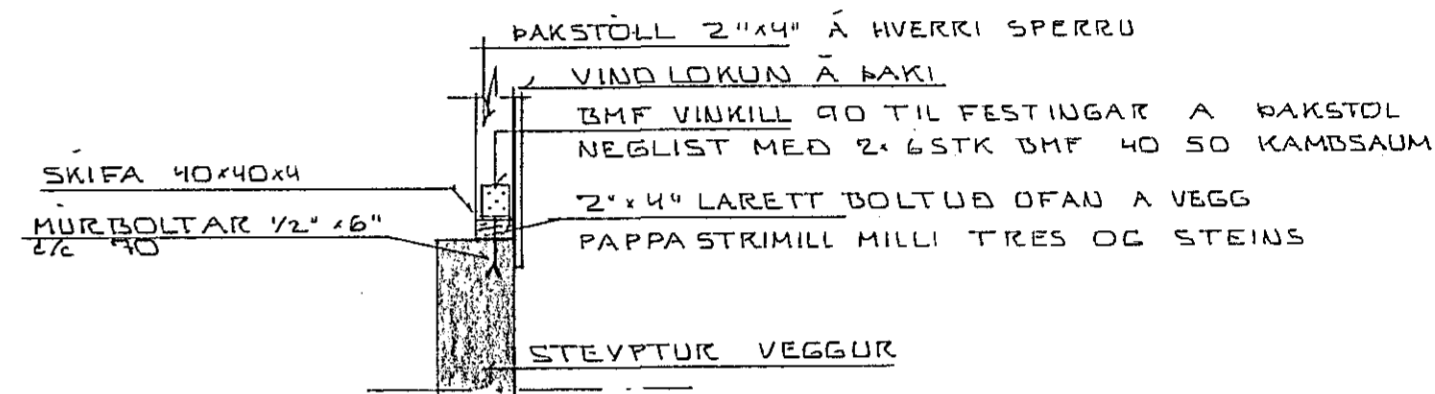 ÞAKSTÓLL 2"x4" Á HVERRI SPERRU
VINDLOKUN Á ÞAKI
BMF VINKILL 90 TIL FESTINGAR A ÞAKSTOL
NEGLIST MEÐ 2x6STK BMF 40 50 KAMBSAUM
SKIFA 40x40x4
2"x4" LARETT BOLTUÐ OFAN A VEGG
MÚRBOLTAR 1/2"x6"
c/c 70
PAPPASTRIMILL MILLI TRES OG STEINS
STEYPTUR VEGGUR